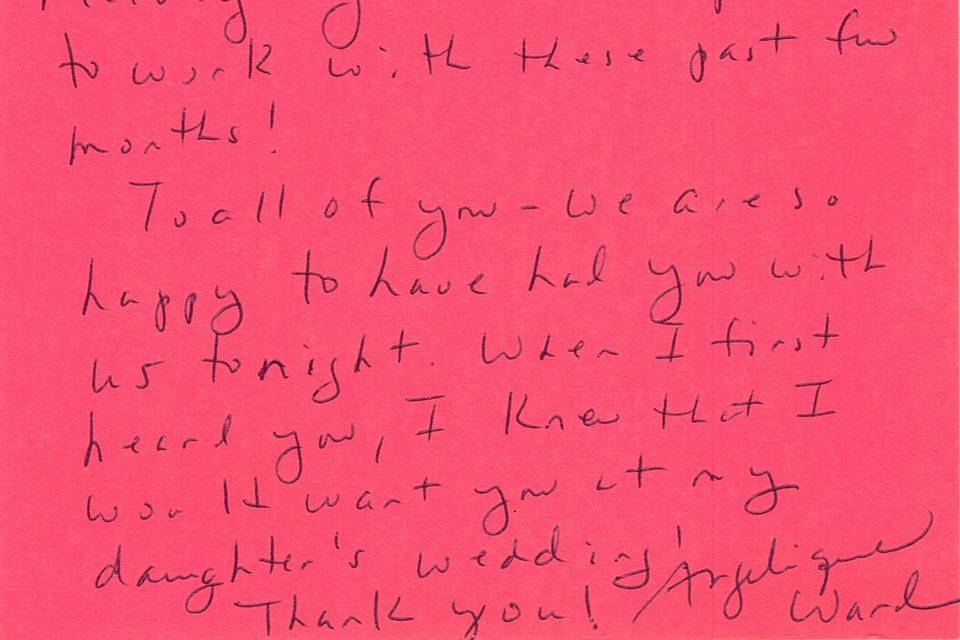 to work with these past few
months!
To all of you - we are so
happy to have had you with
us tonight. When I first
heard you, I knew that I
would want you at my
daughter's wedding!
Thank you! Angelique
Ward